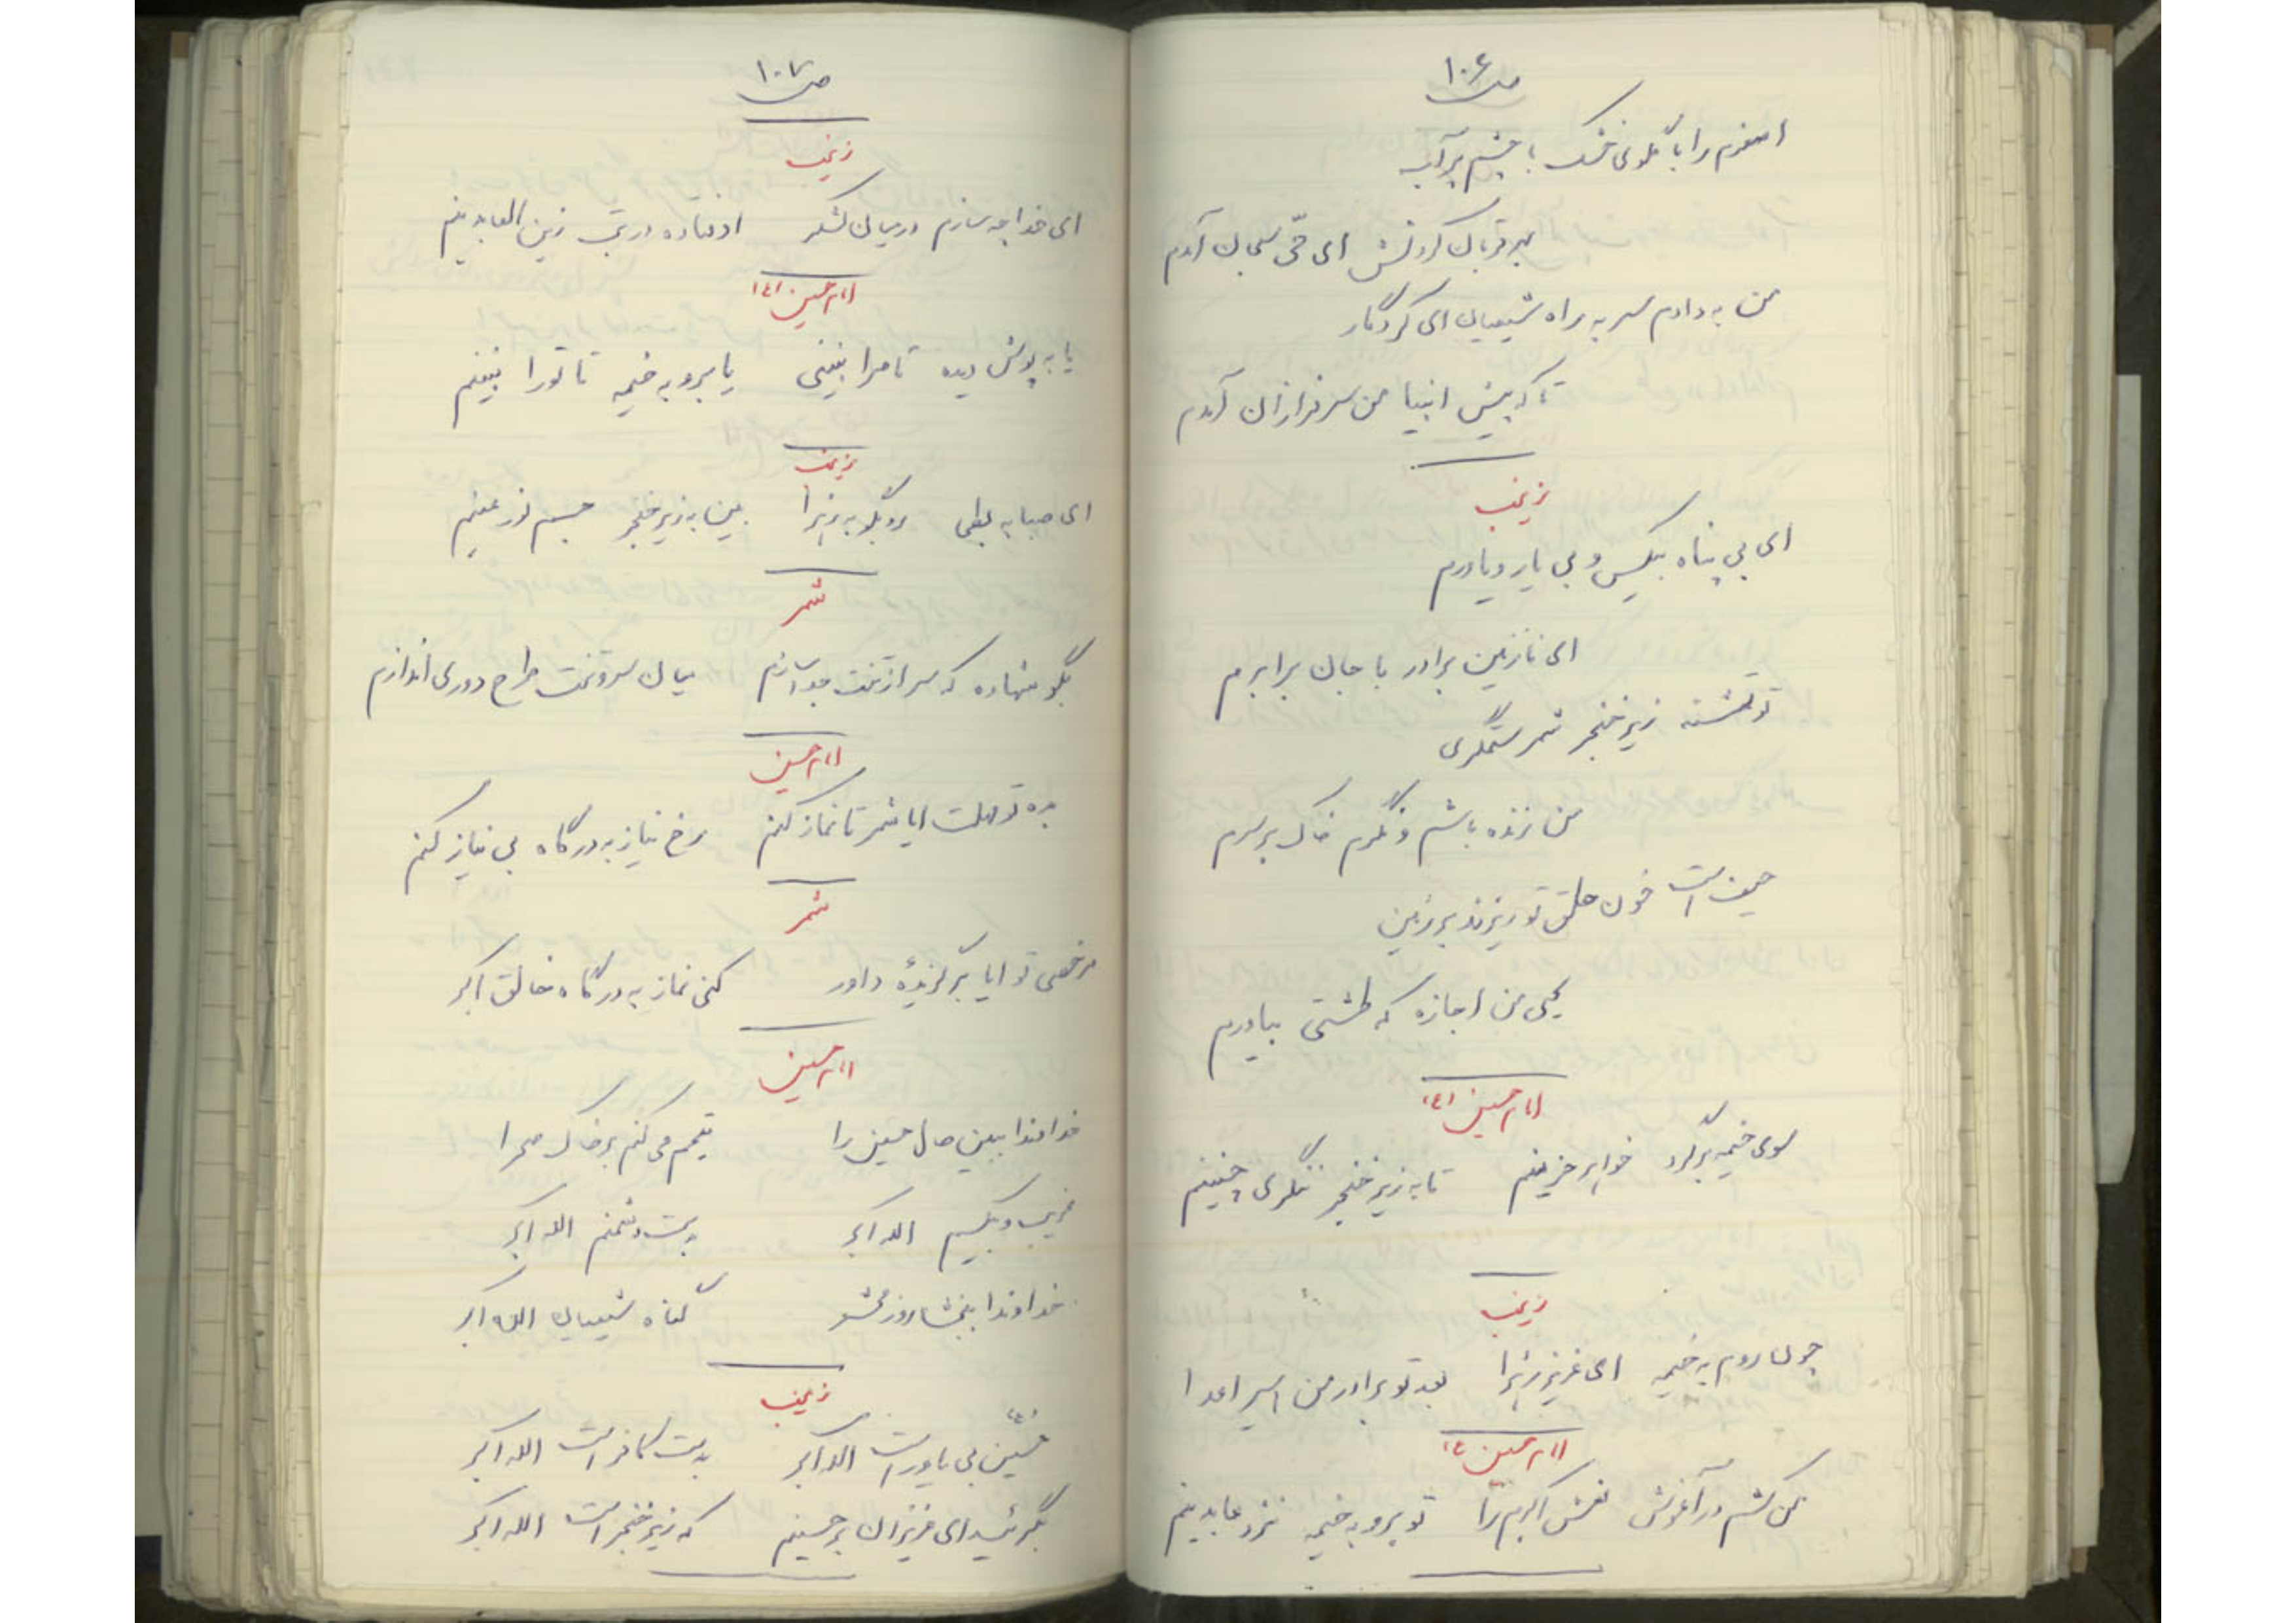 ص ۱۰۶
اصغرم را با گلوی خشک با چشم پرآب
بهر قربان کردنش ای حی سبحان آمدم
من به دادم سر به راه شیعیان ای کردگار
تا که پیش انبیا من سرفرازان آمدم
زینب
ای بی پناه بیکس و بی یار و یاورم
ای نازنین برادر با جان برابرم
تو تشنه زیر خنجر شمر ستمگری
من زنده باشم و نگرم خاک برسرم
حیف است خون حلق تو ریزند بر زمین
کی من اجازه که طشتی بیاورم
امام حسین (ع)
سوی خیمه برگرد خواهر حزینم تا به زیر خنجر ننگری چنینم
زینب
چون روم به خیمه ای عزیز زهرا بعد تو برادر من اسیر اعدا
امام حسین ع
من کشم در آغوش نعش اکبرم را تو برو به خیمه نزد عابدینم
ص ۱۰۷
زینب
ای خدا چه سازم در میان لشکر اوفتاده در تب زین العابدینم
امام حسین (ع)
یا به پوش دیده تا مرا نبینی یا برو به خیمه تا تورا نبینم
زینب
ای صبا به بطحی رو بگو به زهرا بین به زیر خنجر جسم نازنینم
شمر
بگو شهاده که سر از تنت جدا سازم میان سر و تنت طرح دوری اندازم
امام حسین
بده تو مهلت ایا شمر تا نماز کنم رخ نیاز به درگاه بی نیاز کنم
شمر
مرخصی تو ایا برگزیدهٔ داور کنی نماز به درگاه خالق اکبر
امام حسین
خداوندا ببین حال حسین را تیمم می کنم بر خاک صحرا
غریب و بیکسم الله اکبر بدست دشمنم الله اکبر
خداوندا ببخشا روز محشر گناه شیعیان الله اکبر
زینب
حسین (ع) بی یاور است الله اکبر بدست کافر است الله اکبر
بگرئید ای عزیزان بر حسینم که زیر خنجر است الله اکبر